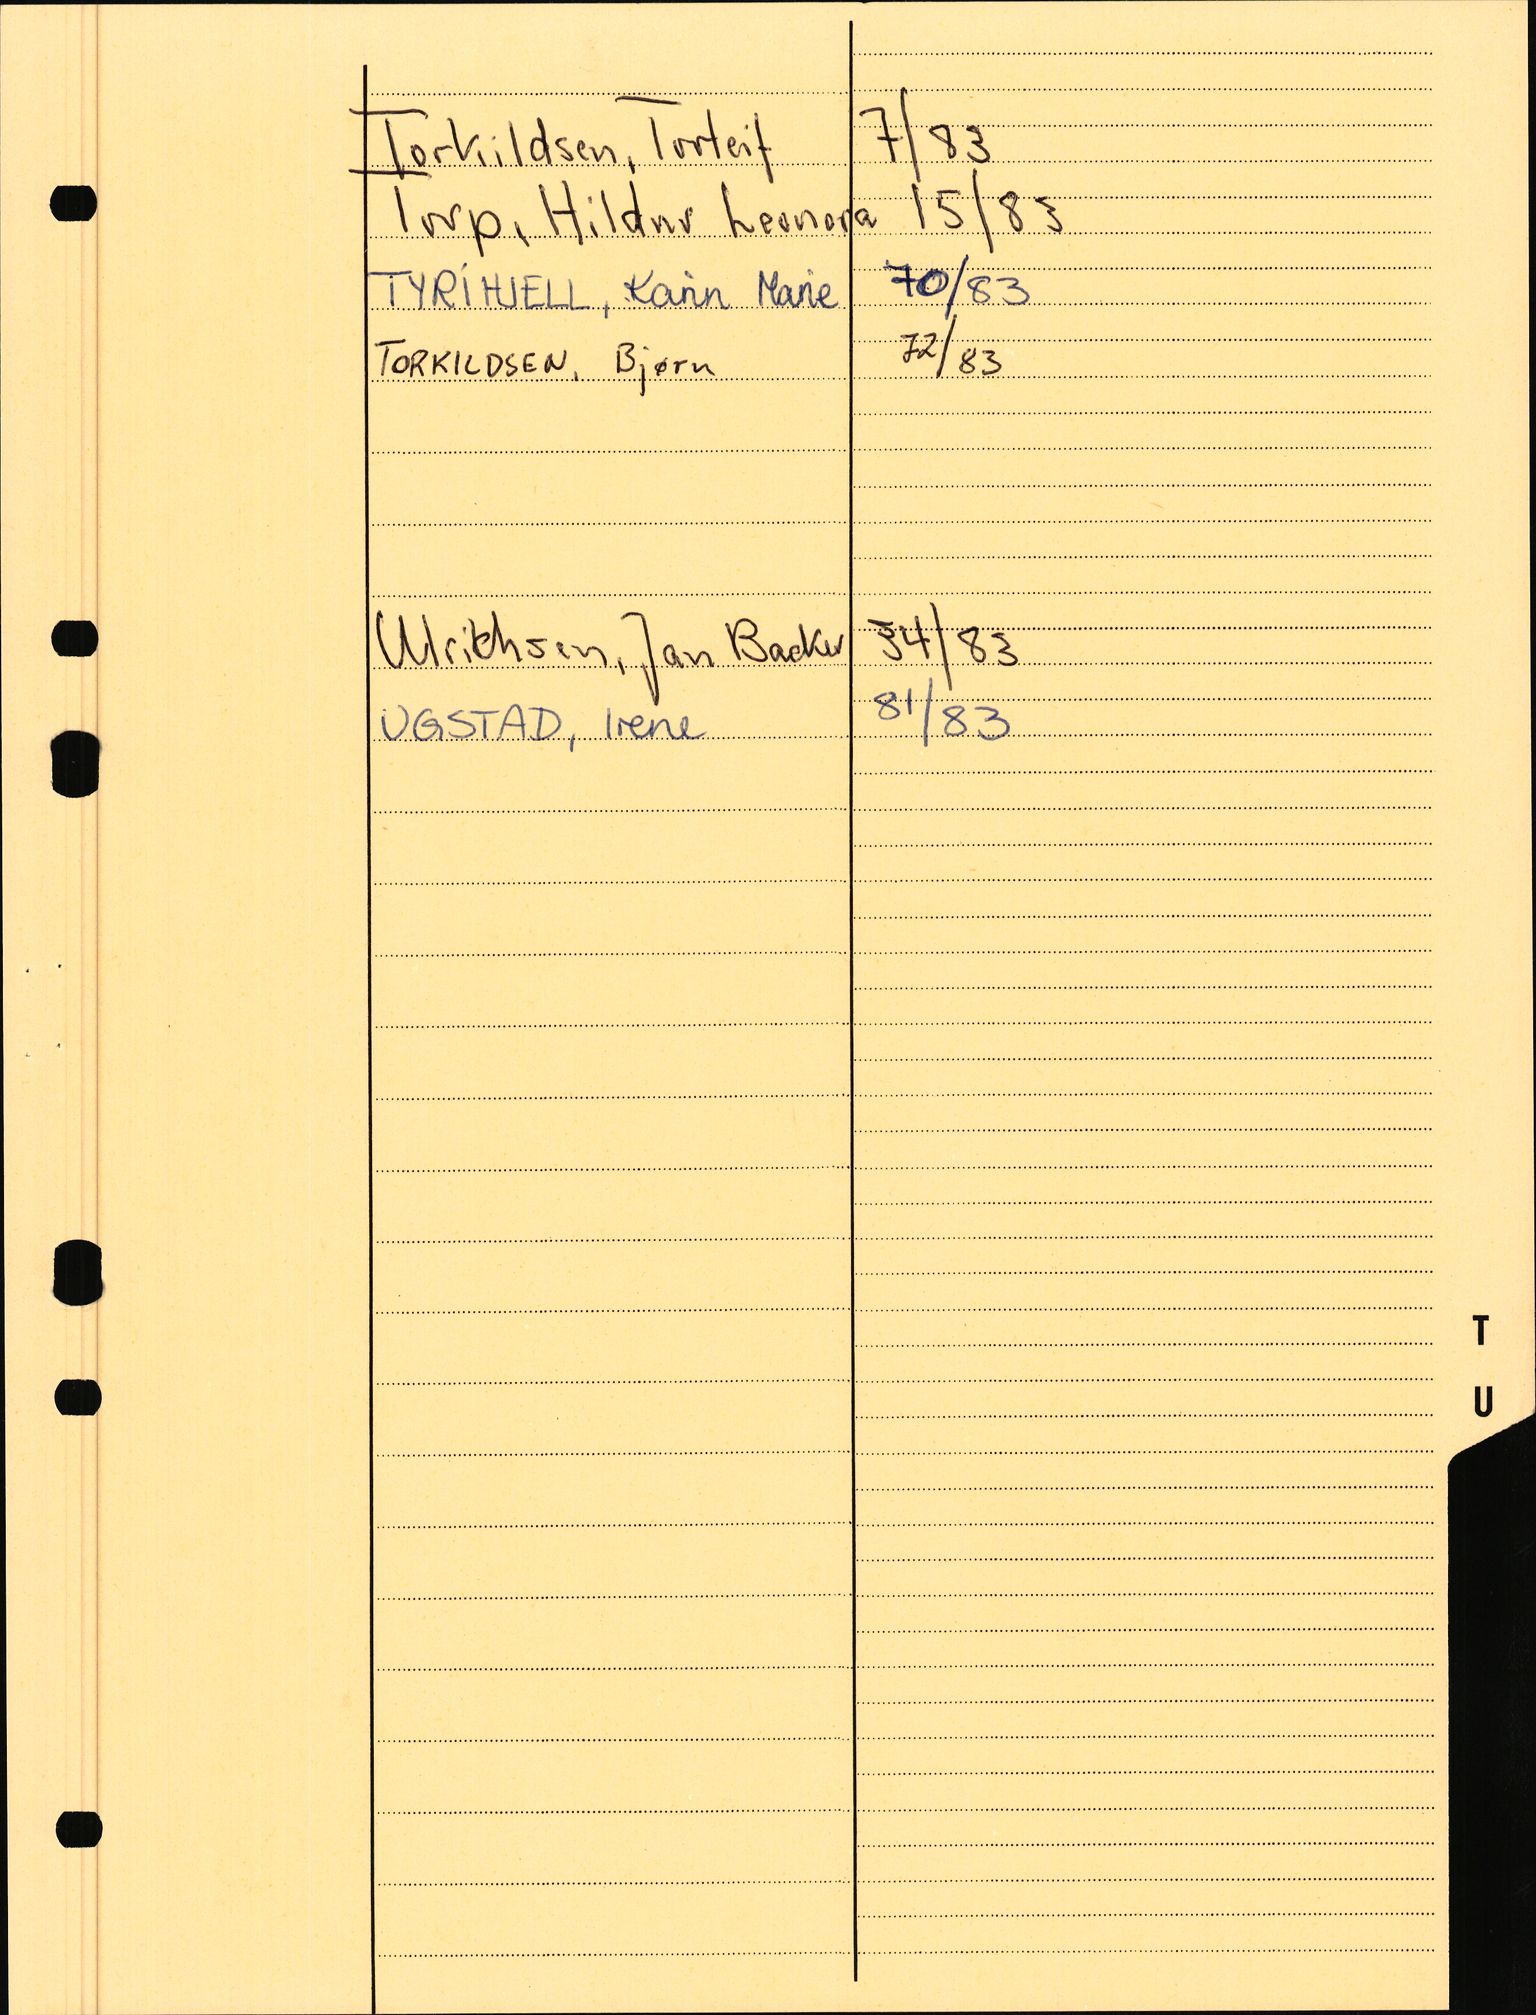 Torkildsen, Torleif 7/83
Torp, Hildur Leonora 15/83
TYRIHJELL, Karin Marie 70/83
TORKILDSEN, Bjørn 72/83
Ulrichsen, Jan Backer 34/83
UGSTAD, Irene 81/83
T
U